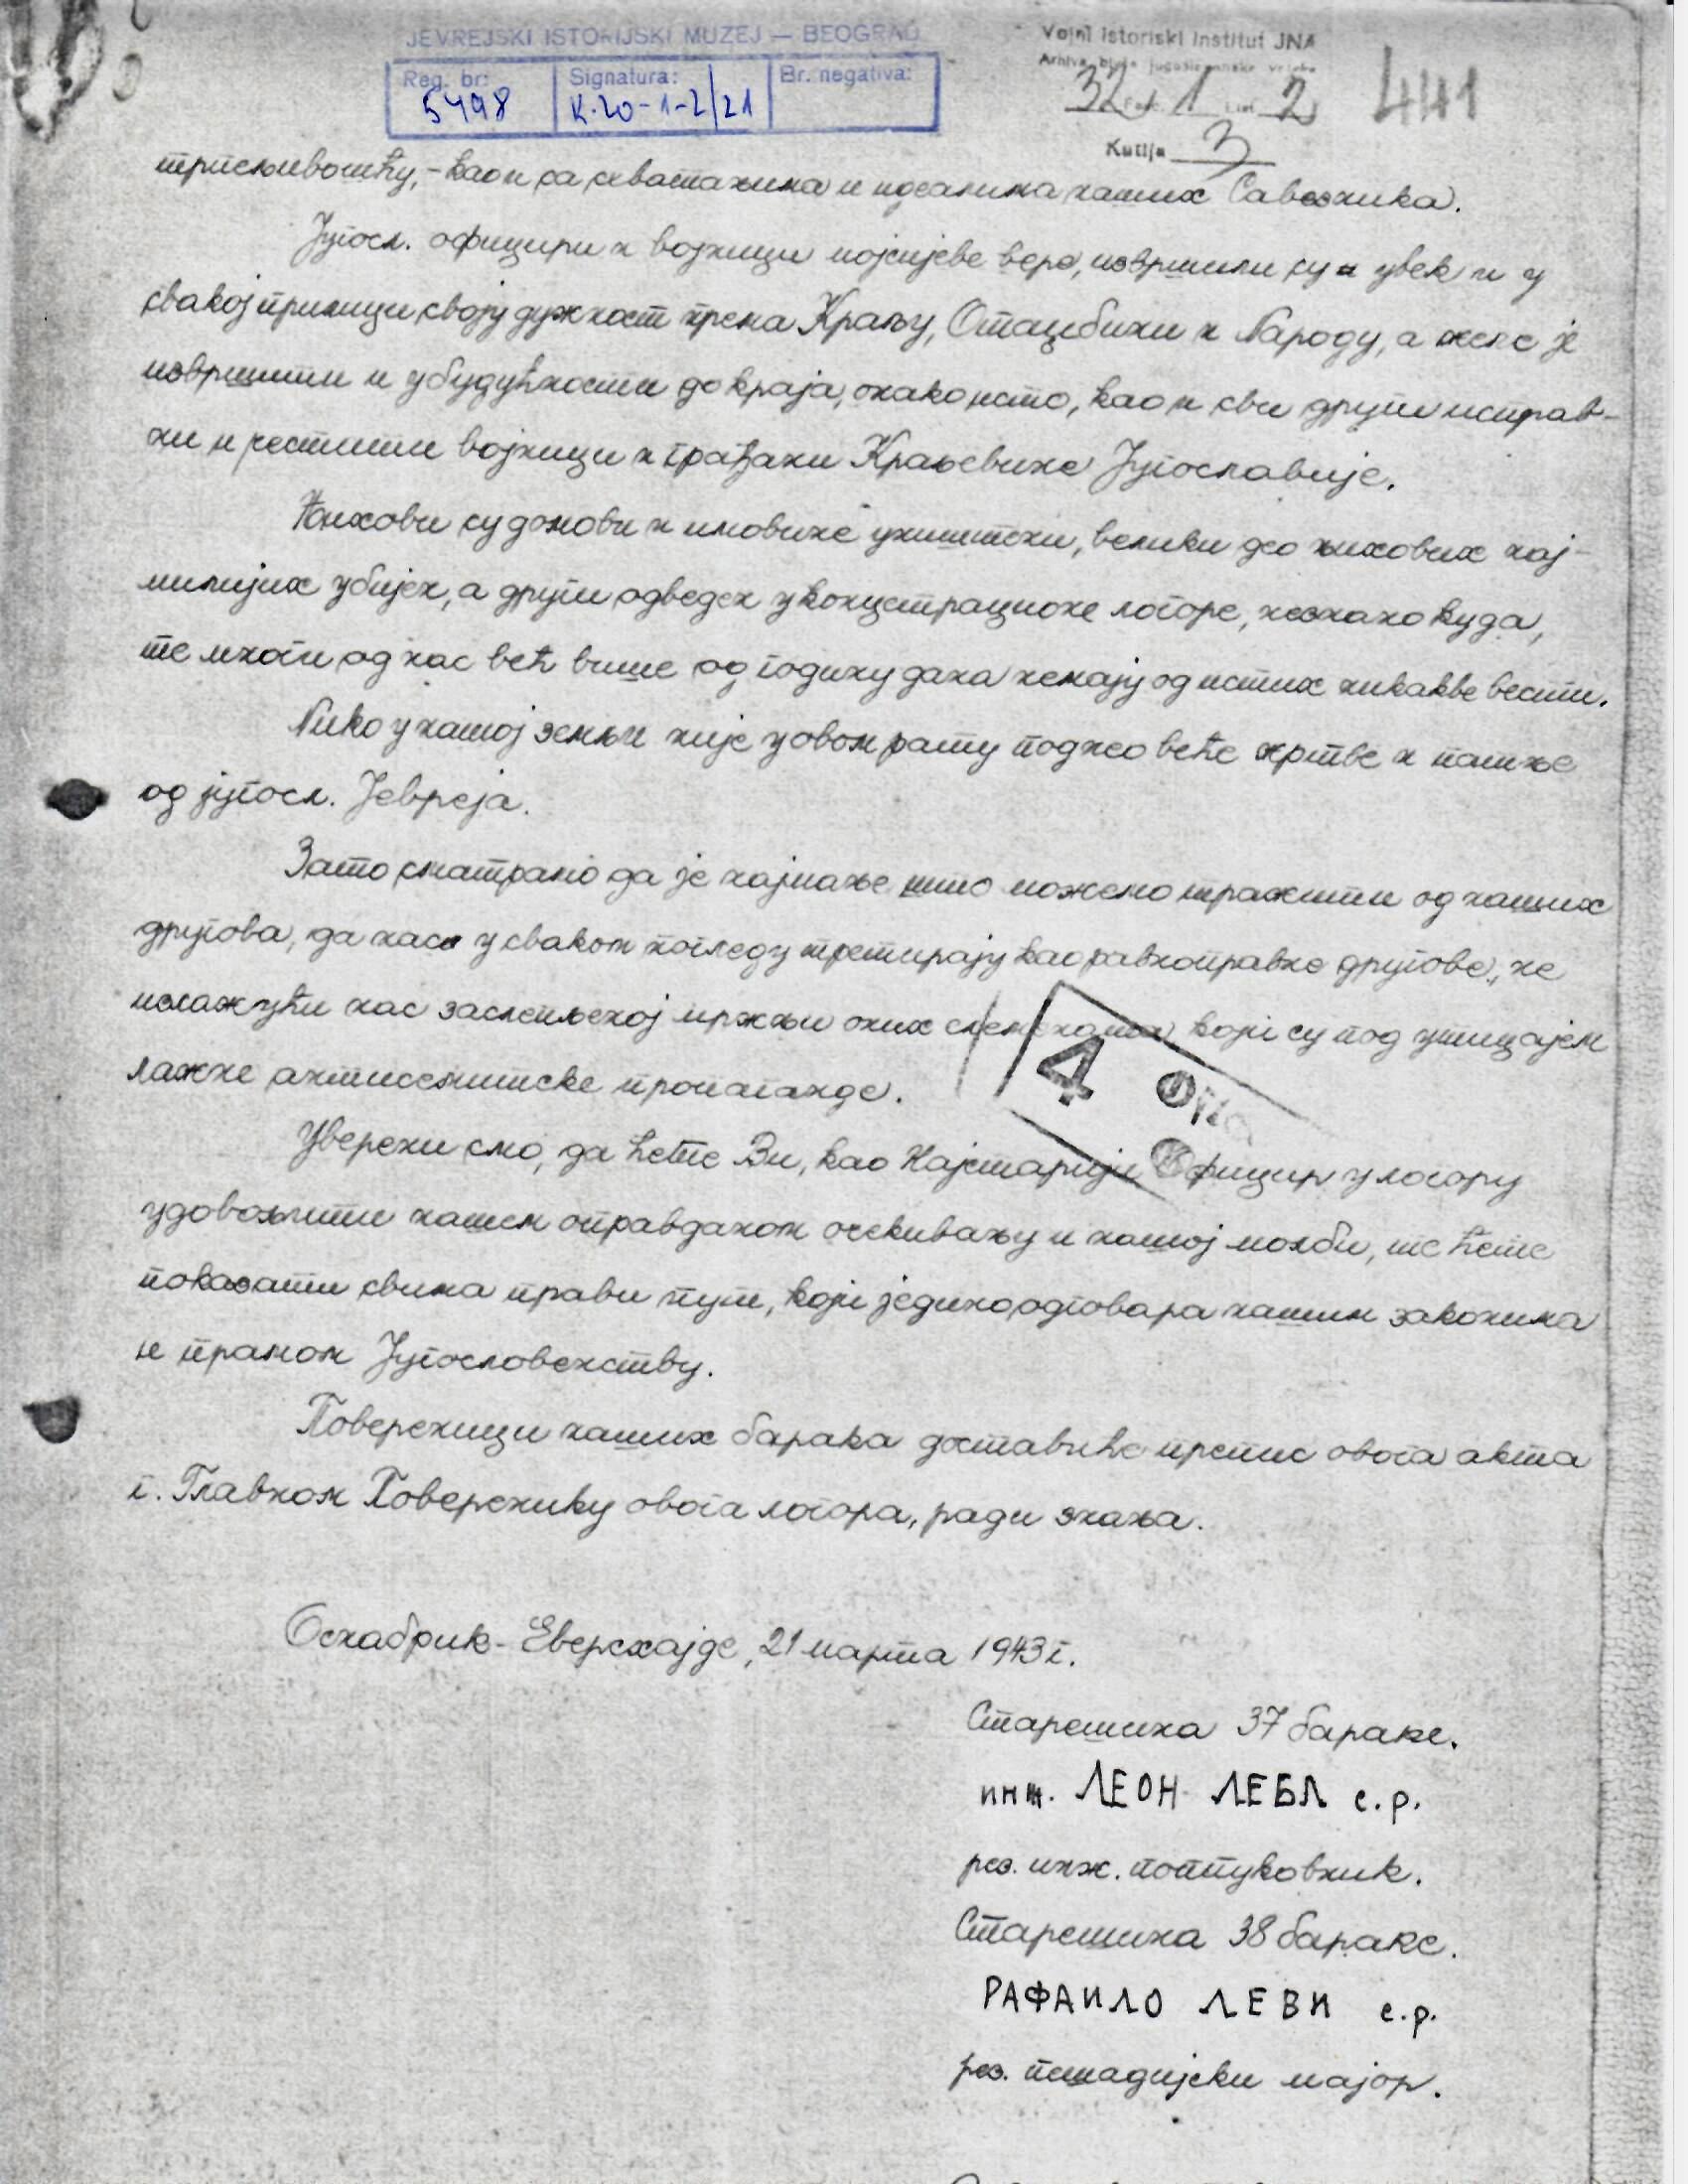 JEVREJSKI ISTORIJSKI MUZEJ — BEOGRAD
Reg. br: 5498
Signatura: K.20-1-2/21
Br. negativa:
Vojni Istoriski Institut JNA
Arhiva bivše jugoslovenske vojske
32 Fasc. 1 2
441
Kutija 3
трпељивошћу,- као и са схватањима и идеалима наших Савезника.
Југосл. официри и војници мојсијеве вере, извршили су увек и у
свакој прилици своју дужност према Краљу, Отаџбини и Народу, а желе је
извршити и у будућности до краја, онако исто, као и сви други исправ-
ни и честити војници и грађани Краљевине Југославије.
Њихови су домови и имовине уништени, велики део њихових нај-
милијих убијен, а други одведен у концетрационе логоре, незнано куда,
те многи од нас већ више од годину дана немају од истих никакве вести.
Нико у нашој земљи није у овом рату поднео веће жртве и патње
од југосл. Јевреја.
Зато сматрамо да је најмање што можемо тражити од наших
другова, да нас у сваком погледу третирају као равноправне другове, не
излажући нас заслепљеној мржњи оних елемената који су под утицајем
лажне антисемитске пропаганде.
4 Ofla
Уверени смо, да ћете Ви, као Најстарији Официр у логору
удовољити нашем оправданом очекивању и нашој молби, те ћете
показати свима прави пут, који једино одговара нашим законима
и правом Југословенству.
Повереници наших барака доставиће препис овога акта
г. Главном Поверенику овога логора, ради знања.
Оснабрик - Еверсхајде, 21 марта 1943 г.
Старешина 37 бараке.
инж. ЛЕОН ЛЕБЛ с.р.
рез. инж. потпуковник.
Старешина 38 бараке.
РАФАИЛО ЛЕВИ с.р.
рез. пешадијски мајор.